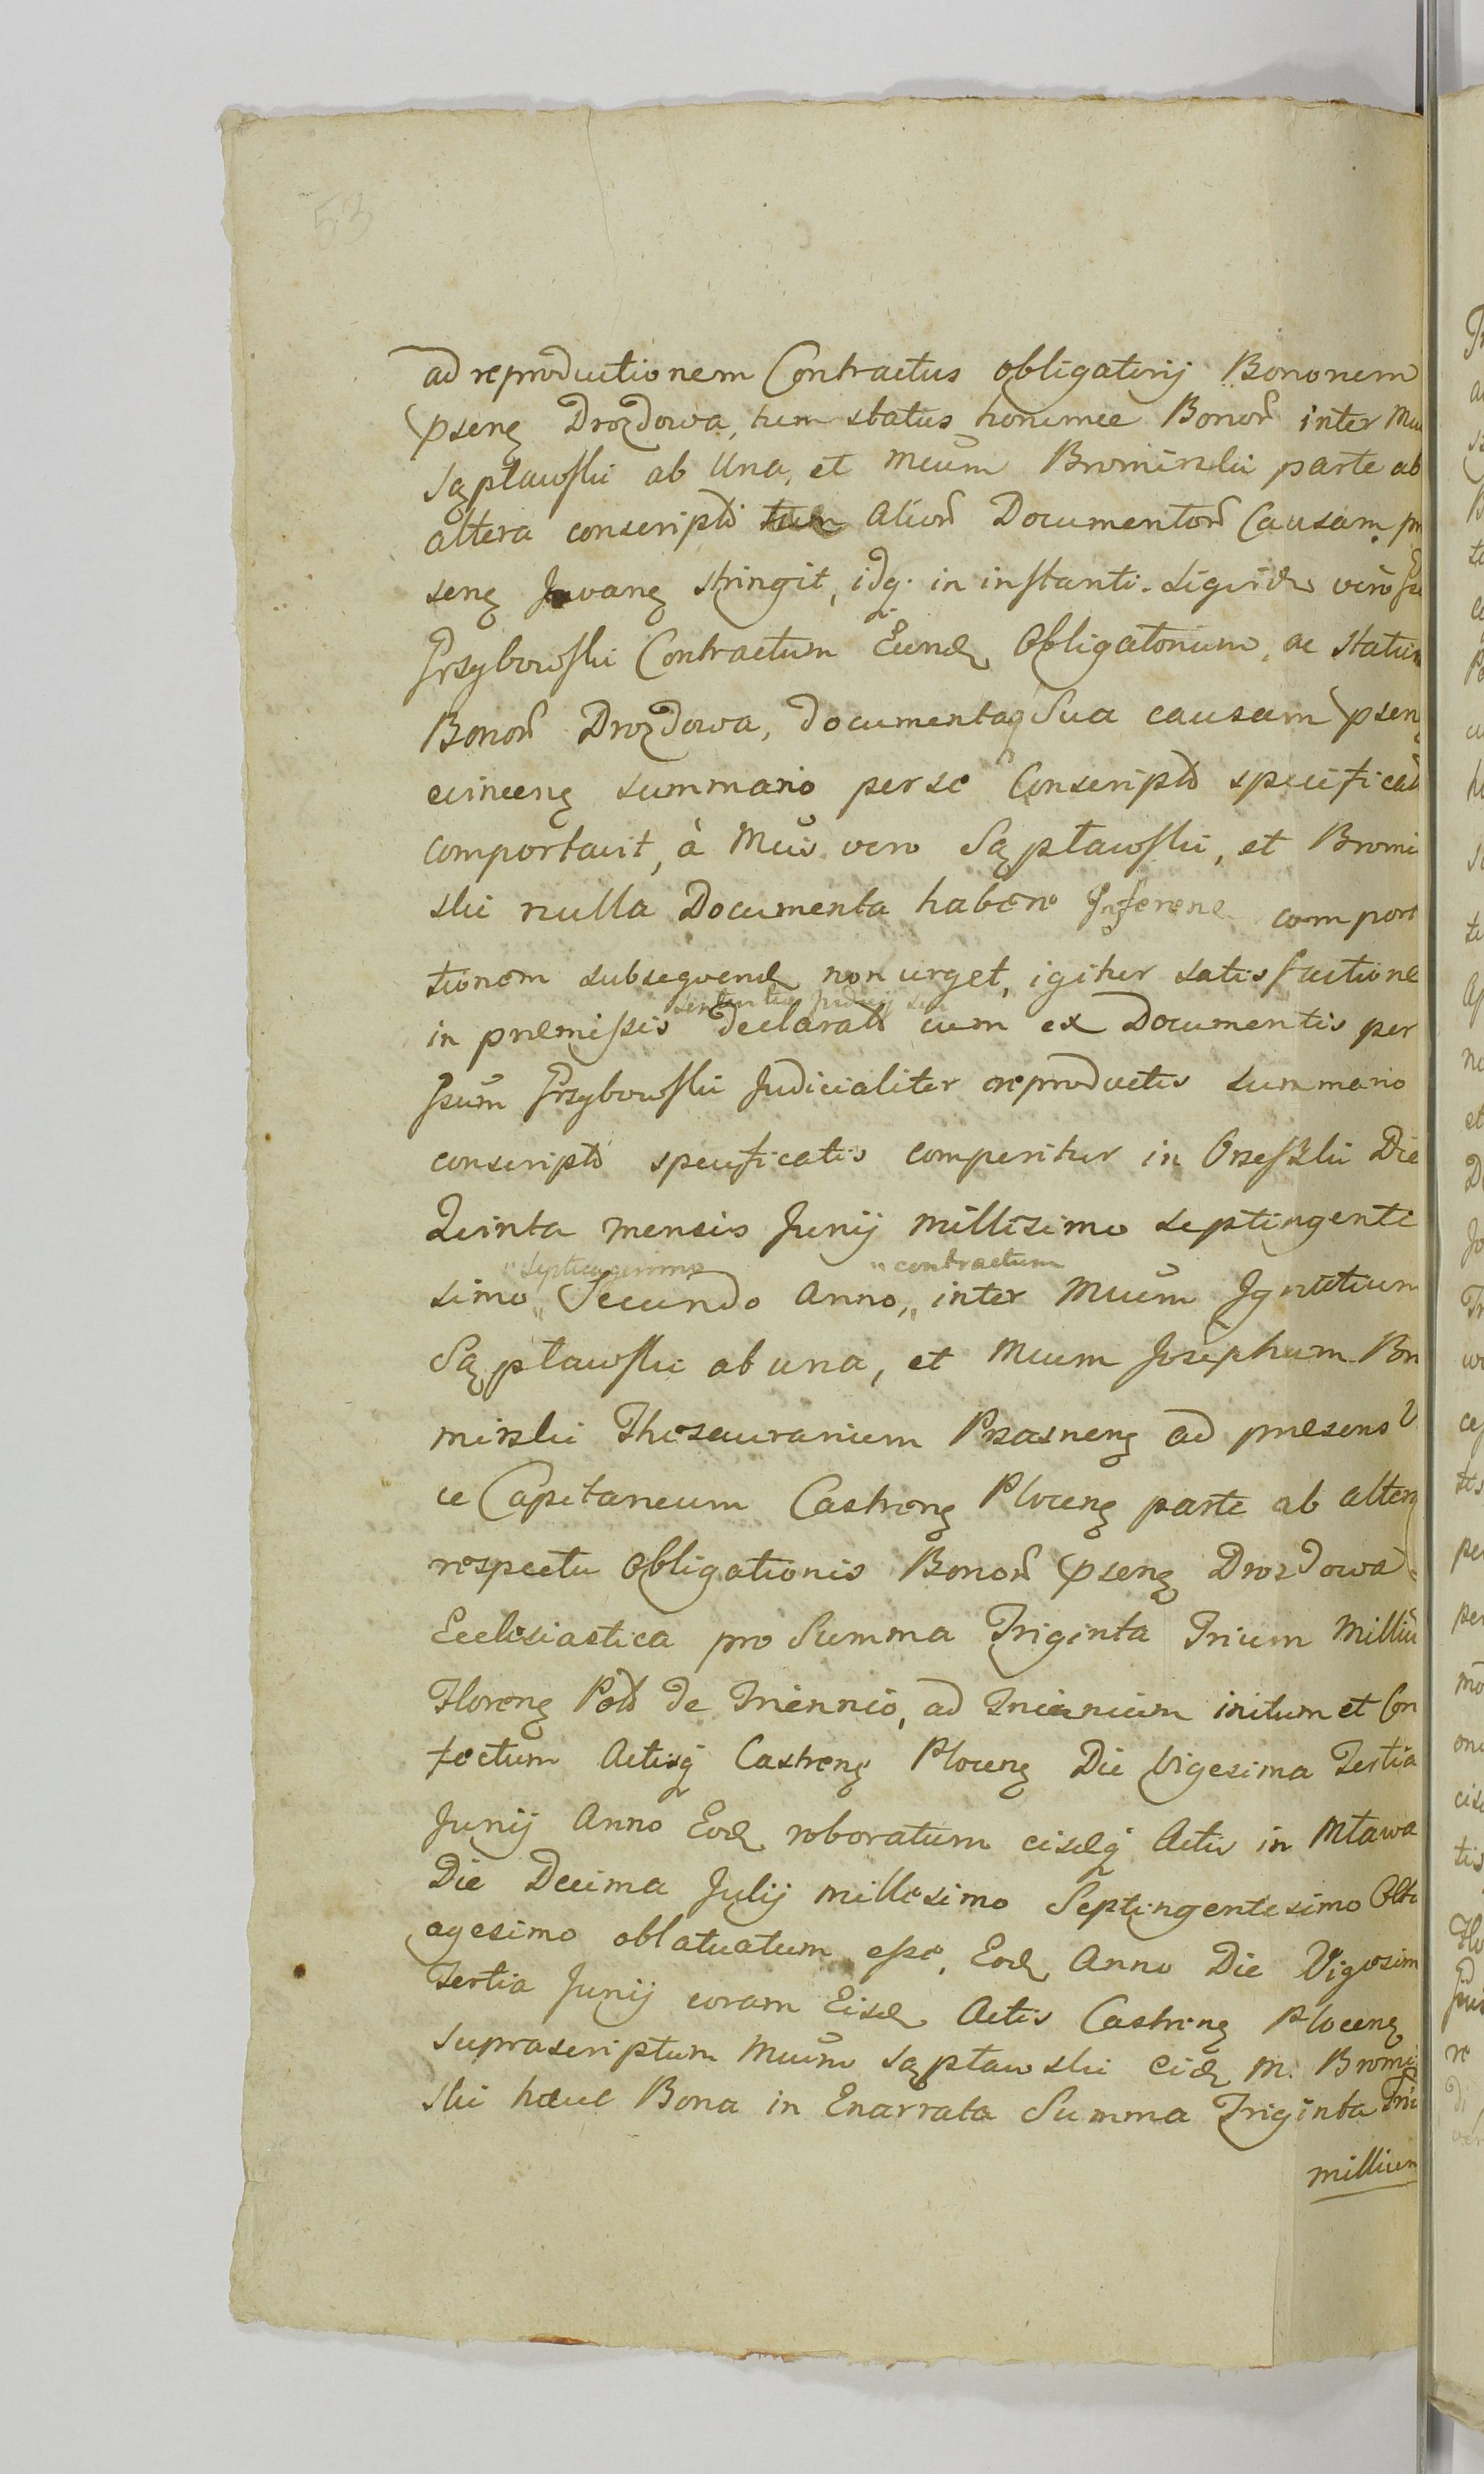 53
ad reproductionem Contractus obligatorij Bononem
pseng Drozdowa, tum status honumce Bonor̃ inter
Sąpławski ab Una, et Mcum̃ Bromirski parte ab
altera conscripti tum alior̃ Documentor̃ Causam. pr
seng Juvang stringit, idq. in instanti. Siquid vero
Grzybowski Contractum Eund Obligatorium, ac statum
Bonor̃ Drozdowa, documentaq Sua causam pseng
evinceng summario per se Conscripto specificat
comportavit, à Mcis vero Sąpławski, et Bromi
ski nulla Documenta habere Inferend comport
tionem subsequend non urget, igitur satisfactione
in præmissis declarato cum ex Documentis per
Gsum̃ Grzybowski Judicialiter reproductis summario
conscripto specificatis comperitur in Orzeszki Die
Quinta mensis Junij millesimo septingente
" septuagesimo " contractum
simo " Secundo Anno, " inter Mcum̃ Ignatium
Sąpławski ab una, et Mcum Josephum Bro
mirski Thesaurarium Przasneng ad præsens V
ce Capitaneum Castreng Ploceng parte ab altera
respectu Obligationis Bonor̃ pseng Drozdowa
Ecclesiastica pro Summa Triginta Trium Milliu
Floreng Pol de Triennio, ad Triennium initum et Con
fectum Actisq Castreng Ploceng Die Vigesima Tertia
Junij Anno Eod roboratum eisdq Actis in Mława
Die Decima Julij millesimo Septingentesimo Octu
agesimo oblatuatum esse, Eod Anno Die Vigesim
Tertia Junij coram Eisd Actis Castreng Ploceng
suprascriptum Mcum̃ Sąpławski Eid M. Bromi
ski hæcce Bona in Enarrata Summa Triginta Triu
millium